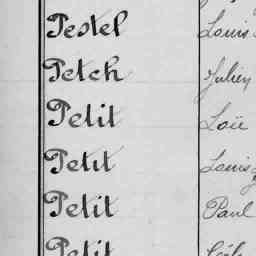 Pestel Louis
Petch Julien
Petit Loü
Petit Louis
Petit Paul
Petit